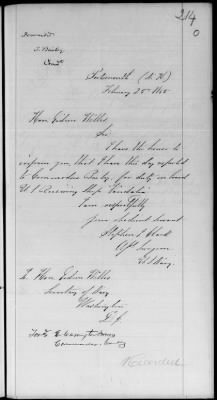 214
0
Forward
Comdt
Portsmouth (N. H.)
February 25th 1865
Hon. Gideon Welles
Sir
I have the honor to
inform you that I have this day reported
to Commodore for duty on board
U S Receiving Ship Vandalia
I am respectfully
your obedient servant
Stephen
Asst Surgeon
U S Navy
To Hon. Gideon Welles
Secretary of Navy
Washington
D. C.
Commander